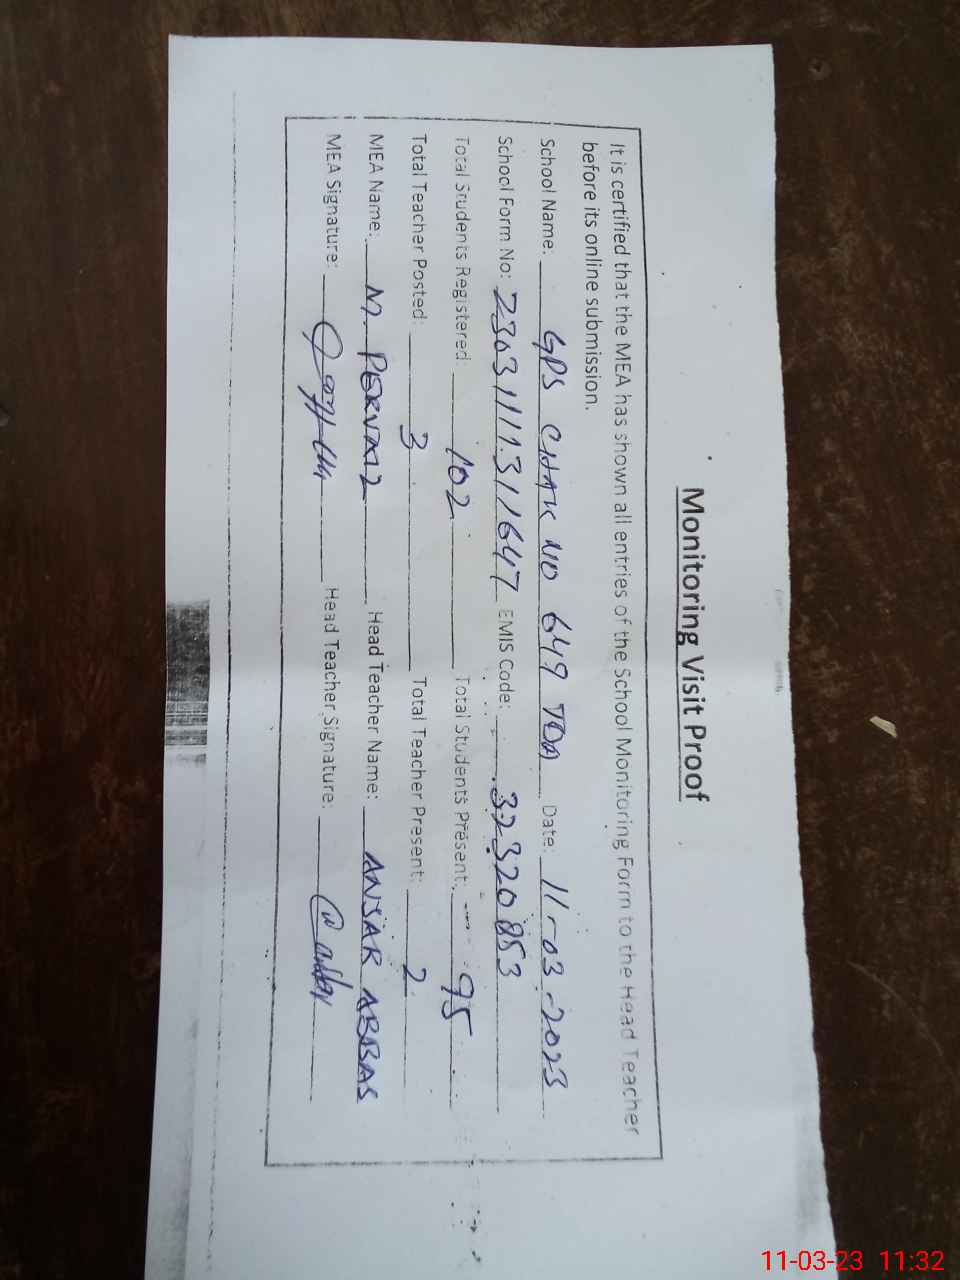 Monitoring Visit Proof
It is certified that the MEA has shown all entries of the School Monitoring Form to the Head Teacher
before its online submission.
School Name: GPS CHAK NO 649 TDA Date: 11-03-2023
School Form No: 23031111311647 EMIS Code: 32320853
Total Students Registered: 102 Total Students Present: 95
Total Teacher Posted: 3 Total Teacher Present: 2
MEA Name: M. PERVAIZ Head Teacher Name: ANSAR ABBAS
MEA Signature: Head Teacher Signature:
11-03-23 11:32